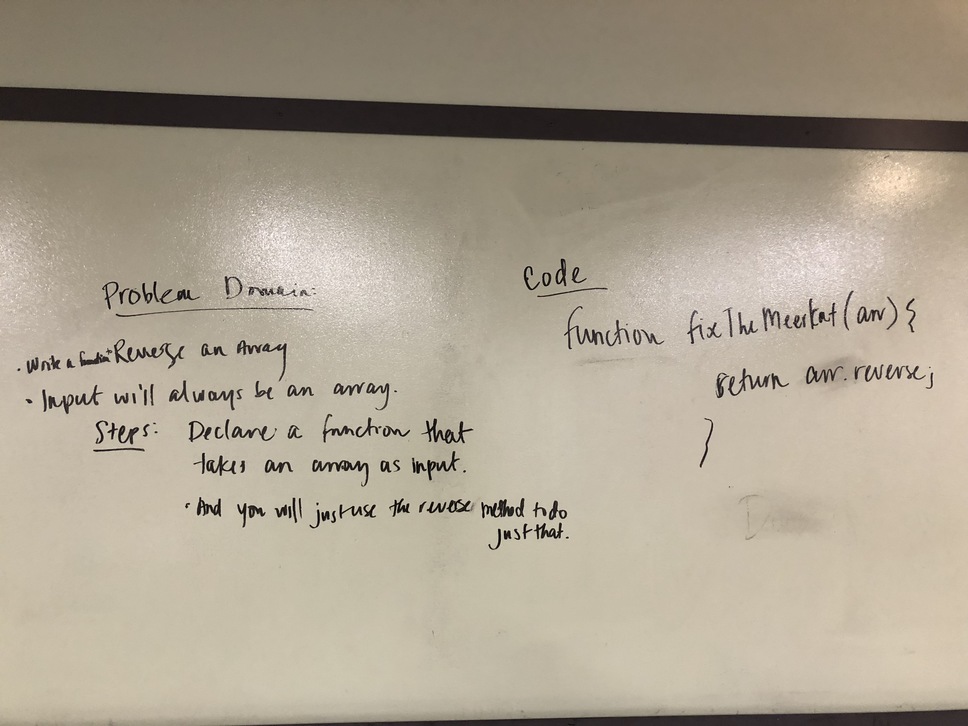 Problem Domain:
• Write a function to Reverse an Array
• Input will always be an array.
Steps: Declare a function that
takes an array as input.
• And you will just use the reverse method to do
just that.
Code
function fixTheMeerkat(arr){
return arr.reverse;
}